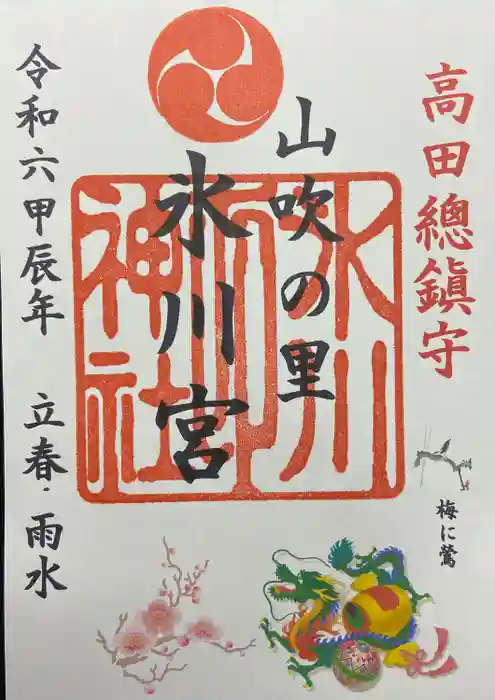 高田總鎮守
山吹の里
氷川宮
氷川
神社
令和六甲辰年 立春・雨水
梅に鶯